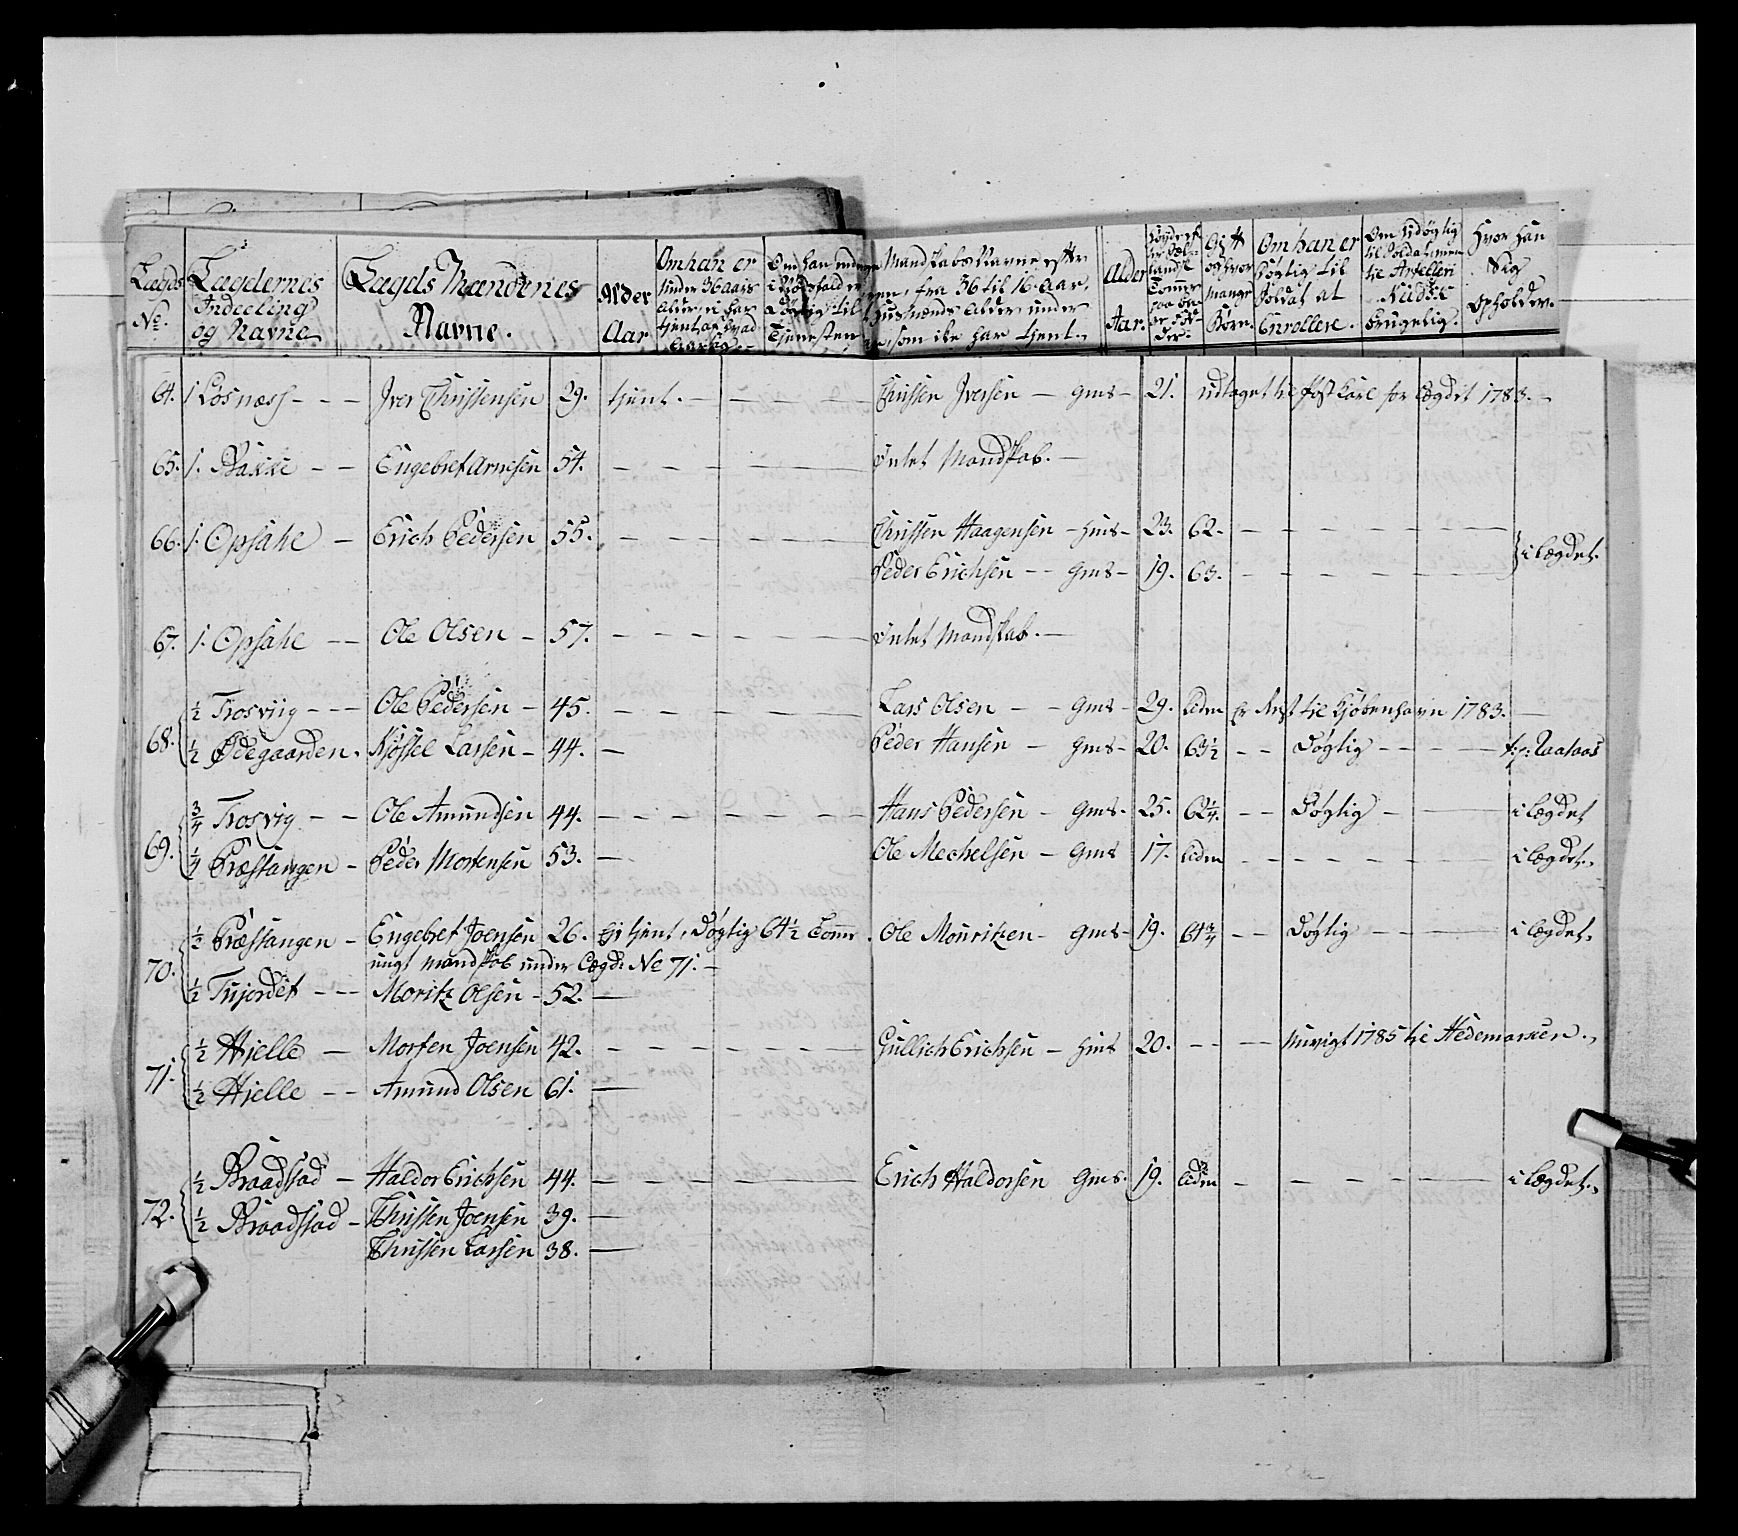 Lægds No.
Lægdernes Inddeeling og Navne
Lægds Mændenes Navne.
Alder Aar
Om han er under 36 Aars alder, ei har tient og hvad
Om han endnu i Nødsfald er dögtig til Tjenesten
Mandskabs Navne efter fra 36 til 16 Aar, under som ike har tjent.
Alder Aar.
Tommer
Gift og hvor mange Börn.
Om han er dögtig til Soldat at Enrollere.
Om Udögtig til Soldat men til Artelleri brugelig.
Hvor han Sig Opholder.
64. 1 Losnæss - - - Iver Christensen 29. tjent. - - Christen Iversen - Gms - 21. udtaget til Postkarl for Lægdet 1783. -
65. 1. Bakke - - Engebret Arnesen 54. - - - - - Intet Mandskab. -
66. 1. Opsahl - Erich Pedersen 55. - - - - - Christen Haagensen - Hms - 23. 62. - - - - -
Peder Erichsen - - Gms - 19. 63. - - - - - } i Lægdet.
67. 1. Opsahl - - Ole Olsen - 57. - - - - - Intet Mandskab. -
68. ½ Trosviig - - - Ole Pedersen - 45. - - - - - Lars Olsen - - Gms - 29. liden er rejst til Kjøbenhavn 1783. -
½ Ødegaarden. Kjøstel Larsen - 44. - Peder Hansen - Gms - 20. 63½ - - Dögtig - - -
69. ¾ Trosvig - - Ole Amundsen 44. - - - - - Hans Pedersen - Gms - 25. 62¼. - - Dögtig - - i Lægdet
¼ Præstangen - Peder Mortensen 53. - Ole Mechelsen - Gms 17. liden - - - - - i Lægdet.
70. ½ Præstangen - Engebret Joensen 26. Ej tjent, Dögtig 64½ Tomr. Ole Mouritzen - Gms - 19. 64¾ - - Dögtig - - - i Lægdet.
ungt Mandskab under Lægd No 71. -
½ Trijordet - - - Moritz Olsen - 52. -
71. ½ Hielle - Morten Joensen 42. - - - - - Gullich Erichsen - Hms 20. - - - 1785 til Hedemarken.
½ Hielle - - Amund Olsen 61. -
72. ½ Braadstad - Haldor Erichsen 44. - - - - - Erich Haldorsen Gms. 19. liden - - - - - i Lægdet.
½ Braadstad - Christen Joensen 39. -
Christen Larsen 38. -